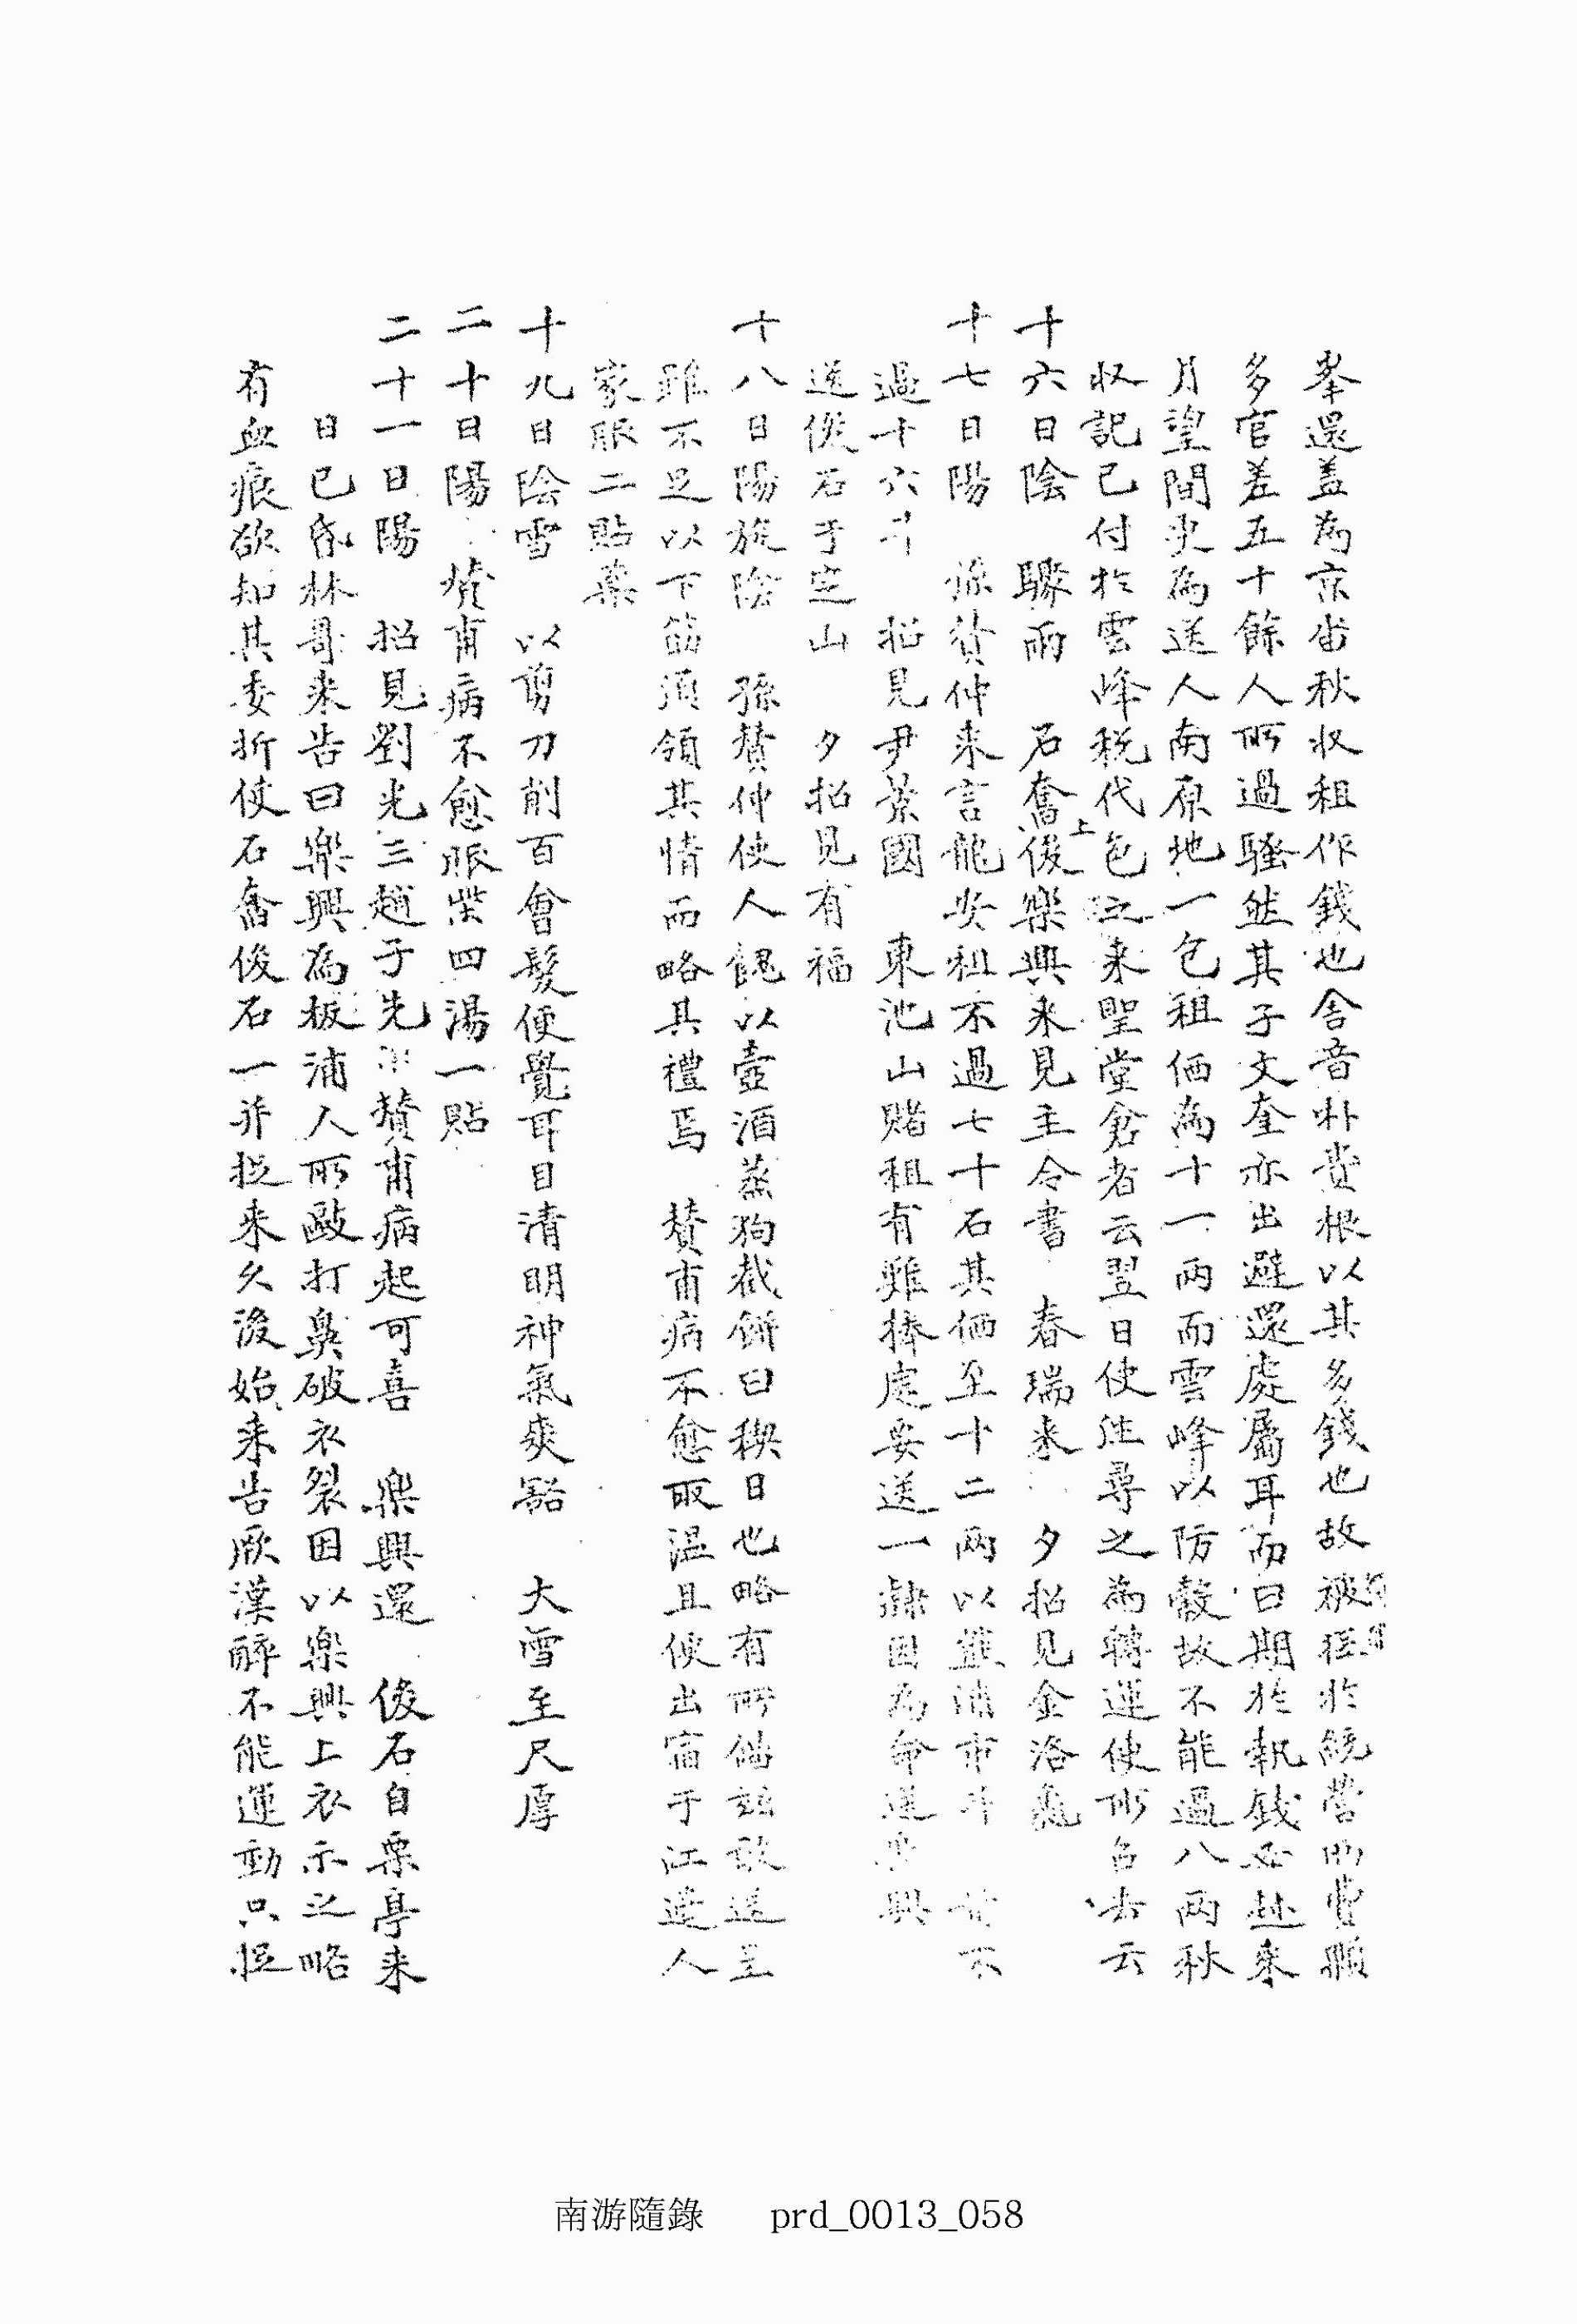 峯還盖爲京畓秋収租作錢也舍音朴貴根以其多錢也故被捉於統營而費願
多官差五十餘人所過騷然其子文奎亦出避還處屬耳而曰期於執錢必赴來
月望間吏爲送人南原地一包租価爲十一両而雲峰以防穀故不能過八両秋
収記已付於雲峰税代包之来聖堂倉者云翌日使往尋之爲轉運使所去云
十六日陰 驟雨 石奮俊上樂興来見主令書 春瑞来 夕招見金洛
十七日陽 孫賛仲来言龍安租不過七十石其価至十二両以 浦市斗 不
過十六斗 招見尹景國 東池山賭租有難捧處要送一隷因爲命送樂興
送俊石于定山 夕招見有福
十八日陽旋陰 孫賛仲使人餽以壺酒蒸狗截餅曰稧日也略有所備玆敢送呈
雖不足以下筯須領其情而略其禮焉 賛甫病不愈取温且便出宿于江邊人
家服二貼藥
十九日陰雪 以剪刀削百會髮便覺耳目清明神氣爽豁 大雪至尺厚
二十日陽 賛甫病不愈服柴四湯一貼
二十一日陽 招見劉光三趙于先 賛甫病起可喜 樂興還 俊石自栗亭来
日已昏林哥来告曰樂興爲板浦人所敺打鼻破衣裂因以樂興上衣示之略
有血痕欲知其委折使石奮俊石一并捉来久後始来告厥漢醉不能運動只捉
南游隨錄 prd_0013_058